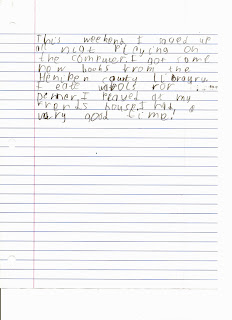 This weekend I stayed up
all nigt Playing on
the computer. I got some
now books from the
Henipen county librarry.
I eate for
Denner. I Played at my
frends house. I had a
very good time!